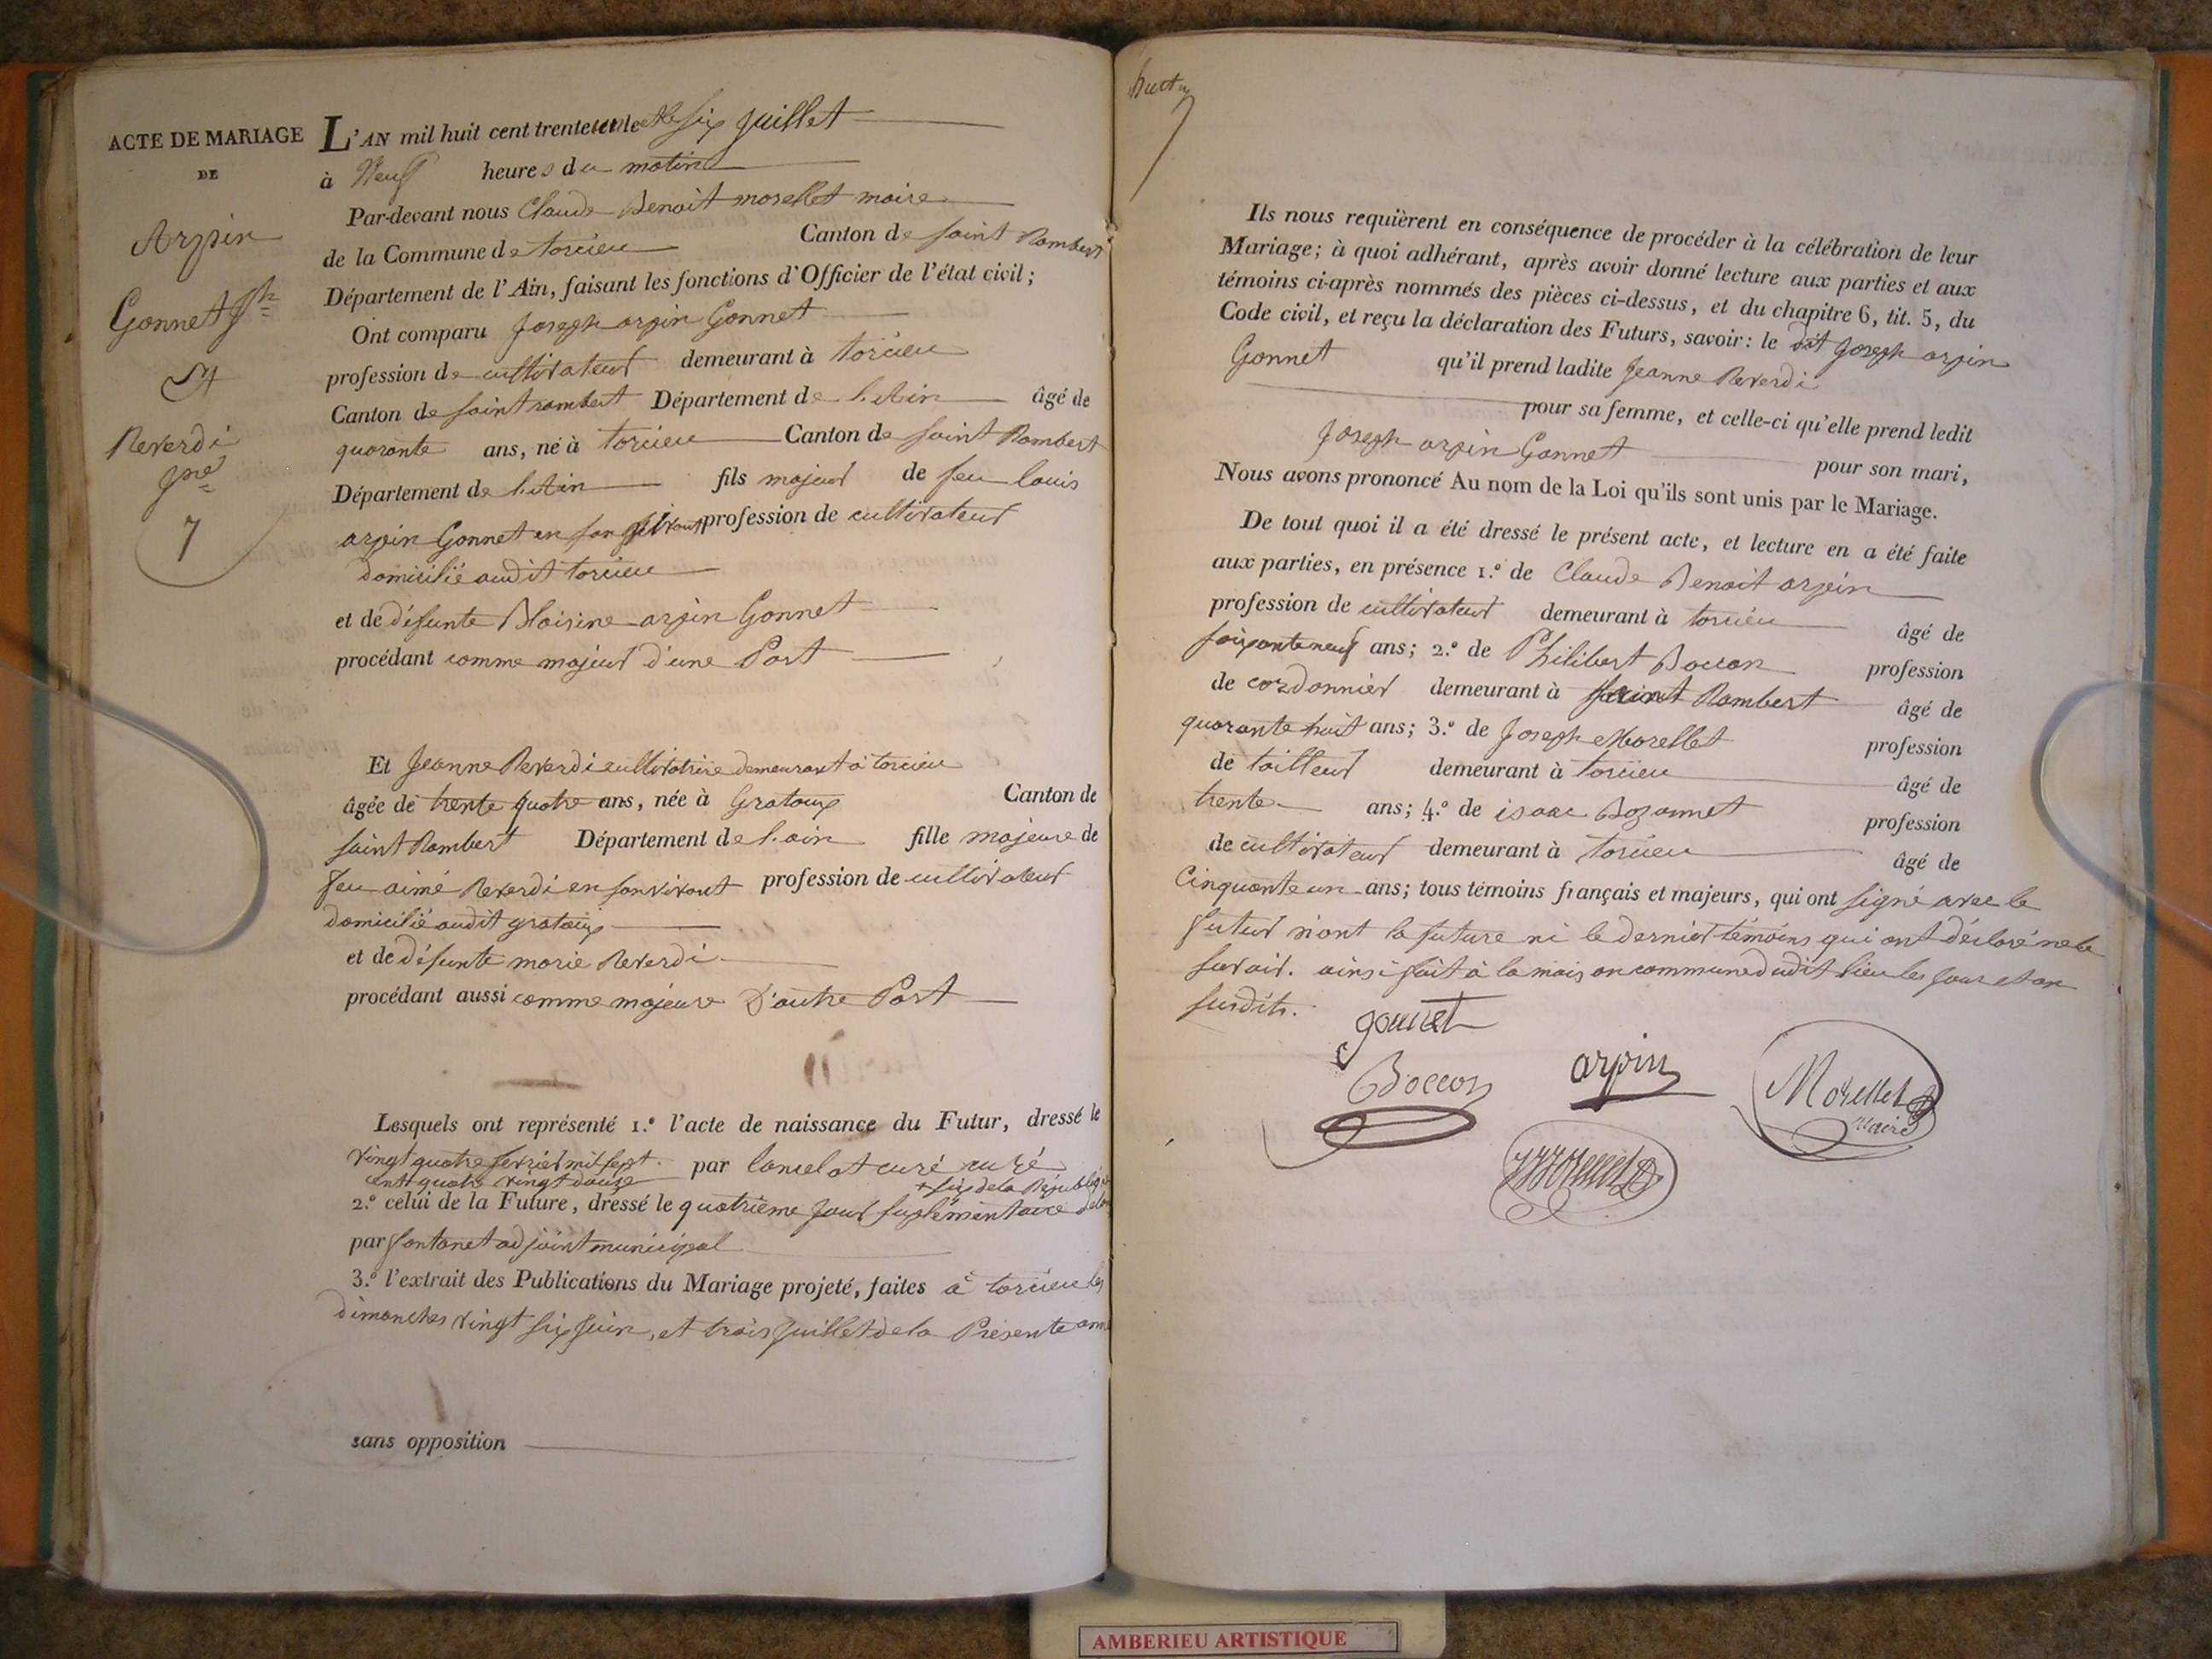 ACTE DE MARIAGE
DE
Arpin
Gonnet Jh
Et
Reverdi
Jne
7
L'AN mil huit cent trente et le six juillet
à Neuf heures du matin
Par-devant nous Claude Benoit morellet maire
de la Commune de torcieu Canton de saint Rambert
Département de l'Ain, faisant les fonctions d'Officier de l'état civil ;
Ont comparu Joseph arpin Gonnet
profession de cultivateur demeurant à torcieu
Canton de saint rambert Département de l'Ain âgé de
quarante ans, né à torcieu Canton de saint Rambert
Département de l'Ain fils majeur de feu louis
arpin Gonnet en son vivant profession de cultivateur
domicilié audit torcieu
et de défunte Blaisine arpin Gonnet
procédant comme majeur d'une Part
Et Jeanne Reverdi cultivatrice demeurant à torcieu
âgée de trente quatre ans, née à Gratoux Canton de
saint Rambert Département de l'ain fille majeure de
feu aimé Reverdi en son vivant profession de cultivateur
domicilié audit gratoux
et de défunte marie Reverdi
procédant aussi comme majeure D'autre Part
Lesquels ont représenté 1.° l'acte de naissance du Futur, dressé le
vingt quatre fevrier mil sept par lancelot curé curé
cent quatre vingt douze + six de la Républiq
2.° celui de la Future, dressé le quatrième jour suplémentaire de l'an
par fontanet adjoint municipal
3.° l'extrait des Publications du Mariage projeté, faites à torcieu les
dimanches vingt six juin, et trois juillet de la Présente anné
sans opposition
huit
Ils nous requièrent en conséquence de procéder à la célébration de leur
Mariage ; à quoi adhérant, après avoir donné lecture aux parties et aux
témoins ci-après nommés des pièces ci-dessus, et du chapitre 6, tit. 5, du
Code civil, et reçu la déclaration des Futurs, savoir : le dit Joseph arpin
Gonnet qu'il prend ladite Jeanne Reverdi
pour sa femme, et celle-ci qu'elle prend ledit
Joseph arpin Gonnet pour son mari,
Nous avons prononcé Au nom de la Loi qu'ils sont unis par le Mariage.
De tout quoi il a été dressé le présent acte, et lecture en a été faite
aux parties, en présence 1.° de Claude Benoit arpin
profession de cultivateur demeurant à torcieu âgé de
soixante neuf ans ; 2.° de Philibert Boccon profession
de cordonnier demeurant à saint Rambert âgé de
quarante huit ans ; 3.° de Joseph Morellet profession
de tailleur demeurant à torcieu âgé de
trente ans ; 4.° de isaac Bozonnet profession
de cultivateur demeurant à torcieu âgé de
Cinquante un ans ; tous témoins français et majeurs, qui ont signé avec le
futur n'ont la future ni le dernier témoins qui ont déclaré ne le
savoir. ainsi fait à la maison commune dudit lieu les jour et an
susdits.
gonnet
Boccon arpin Morellet
Maire
AMBERIEU ARTISTIQUE